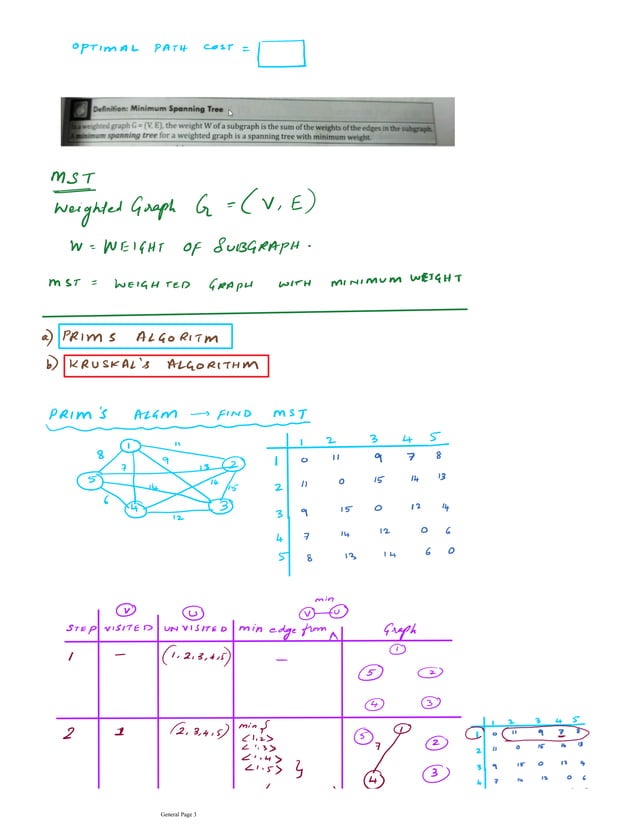 OPTIMAL PATH COST =
Definition: Minimum Spanning Tree
In a weighted graph G = (V, E), the weight W of a subgraph is the sum of the weights of the edges in the subgraph.
A minimum spanning tree for a weighted graph is a spanning tree with minimum weight.
MST
Weighted Graph G = (V, E)
W = WEIGHT OF SUBGRAPH.
MST = WEIGHTED GRAPH WITH MINIMUM WEIGHT
a) PRIMS ALGORITM
b) KRUSKAL'S ALGORITHM
PRIM'S ALGM → FIND MST
1 2 3 4 5
1 0 11 9 7 8
2 11 0 15 14 13
3 9 15 0 12 14
4 7 14 12 0 6
5 8 13 14 6 0
1 11
8 7 9 13 2
5 14 14 15
6 4 12 3
min
V U V—U
STEP VISITED UNVISITED min edge from Graph
1 — (1,2,3,4,5) — 1
5 2
4 3
2 1 (2,3,4,5) min {
<1,2>
<1,3>
<1,4>
<1,5> }
1
5 7 2
4 3
1 2 3 4 5
1 0 11 9 7 8
2 11 0 15 14 13
3 9 15 0 12
4 7 14 12 0 6
General Page 3